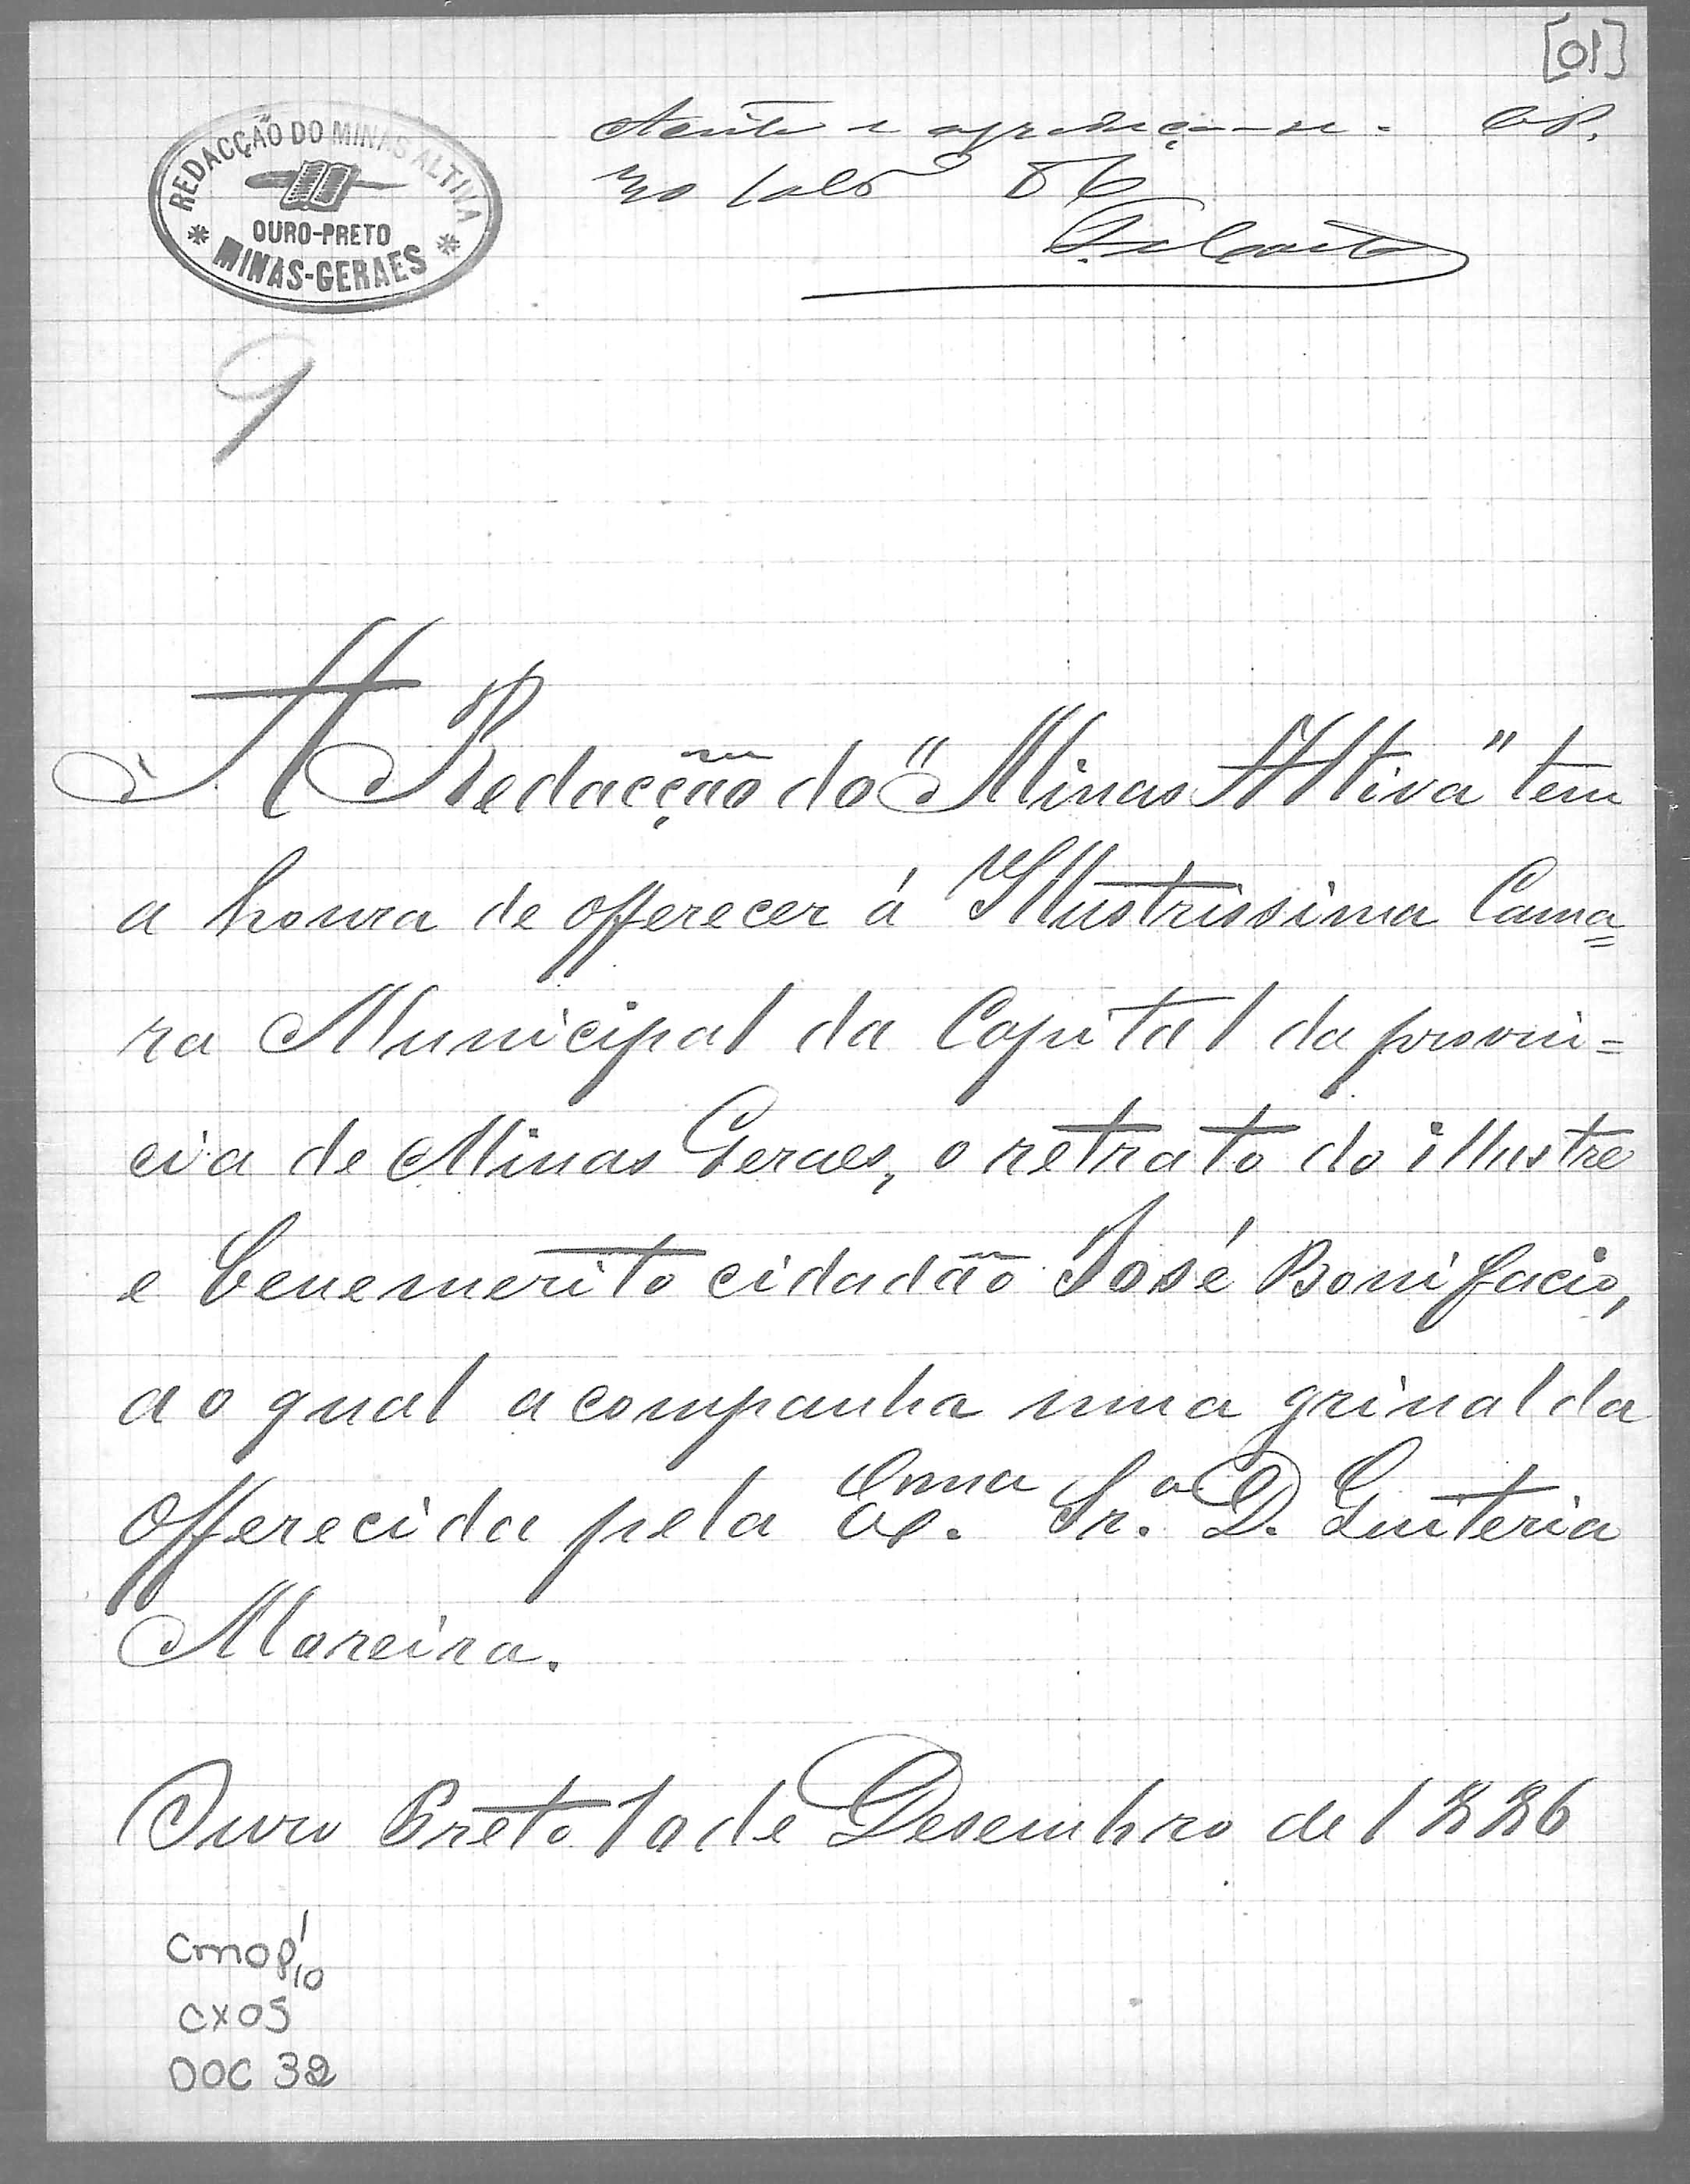 [01]
REDACÇÃO DO MINAS ALTIVA
OURO-PRETO
MINAS-GERAES
e agradeça-se. OP.
86
9
A Redacção do "Minas Altiva" tem
a honra de offerecer á Illustrissima Cama=
ra Municipal da Capital da provin=
cia de Minas Geraes, o retrato do illustre
e benemerito cidadão José Bonifacio,
ao qual acompanha uma grinalda
offerecida pela Ex.ma Sr.a D. Quiteria
Moreira.
Ouro Preto 1o de Desembro de 1886
CMOP 1/10
CX05
DOC 32